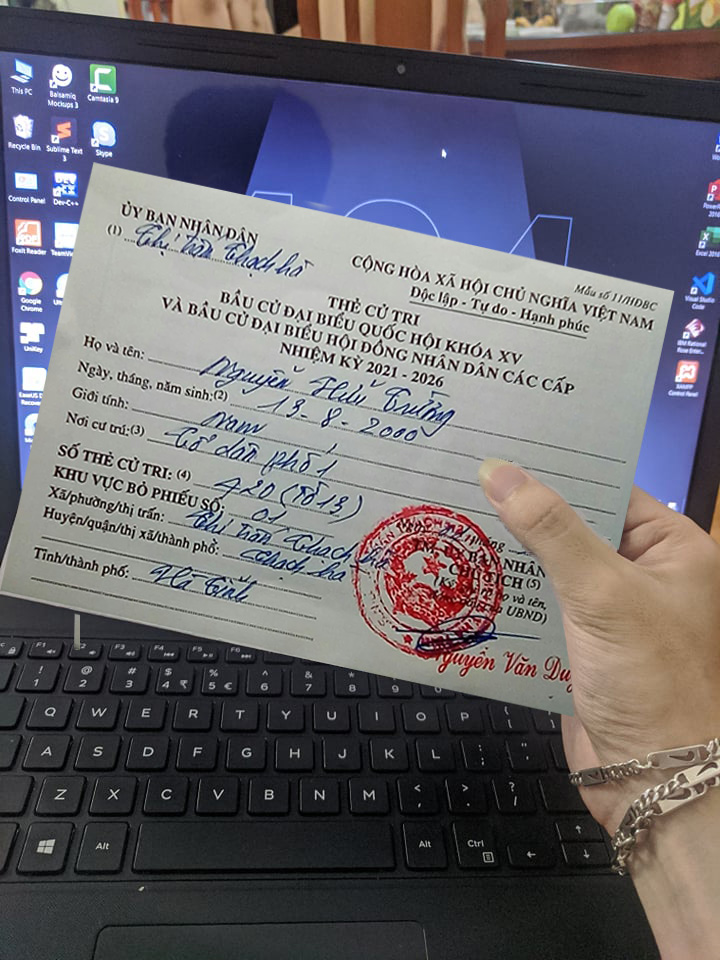 This PC
Balsamiq Mockups 3
Camtasia 9
Recycle Bin
Sublime Text 3
Skype
Control Panel
Dev-C++
Foxit Reader
TeamView
Google Chrome
UniKey
EaseUS D
Recove
PowerP
2016
Excel 2016
Visual Studio Code
IBM Rational Rose Enter...
XAMPP Control Panel
Mẫu số 11/HĐBC
ỦY BAN NHÂN DÂN
(1) Thị trấn Thạch hà
CỘNG HÒA XÃ HỘI CHỦ NGHĨA VIỆT NAM
Độc lập - Tự do - Hạnh phúc
THẺ CỬ TRI
BẦU CỬ ĐẠI BIỂU QUỐC HỘI KHÓA XV
VÀ BẦU CỬ ĐẠI BIỂU HỘI ĐỒNG NHÂN DÂN CÁC CẤP
NHIỆM KỲ 2021 - 2026
Họ và tên: Nguyễn Hữu Trường
Ngày, tháng, năm sinh:(2) 13 - 8 - 2000
Giới tính: Nam
Nơi cư trú:(3) Tổ dân phố 1
SỐ THẺ CỬ TRI: (4) 420 (Tổ 13)
KHU VỰC BỎ PHIẾU SỐ: 01
Xã/phường/thị trấn: Thị trấn Thạch hà
Huyện/quận/thị xã/thành phố: Thạch hà
Tỉnh/thành phố: Hà Tĩnh
tháng
TM. ỦY BAN NHÂN
CHỦ TỊCH (5)
họ và tên,
UBND)
Nguyễn Văn Du
F1 F2 F3 F4 F5 F6
! @ # $ % ^ & * (
1 2 3 4 ₹ 5 € 6 7 8 9
Q W E R T Y U I O P
A S D F G H J K L : "
Z X C V B N M < > ?
Alt Alt Ctrl